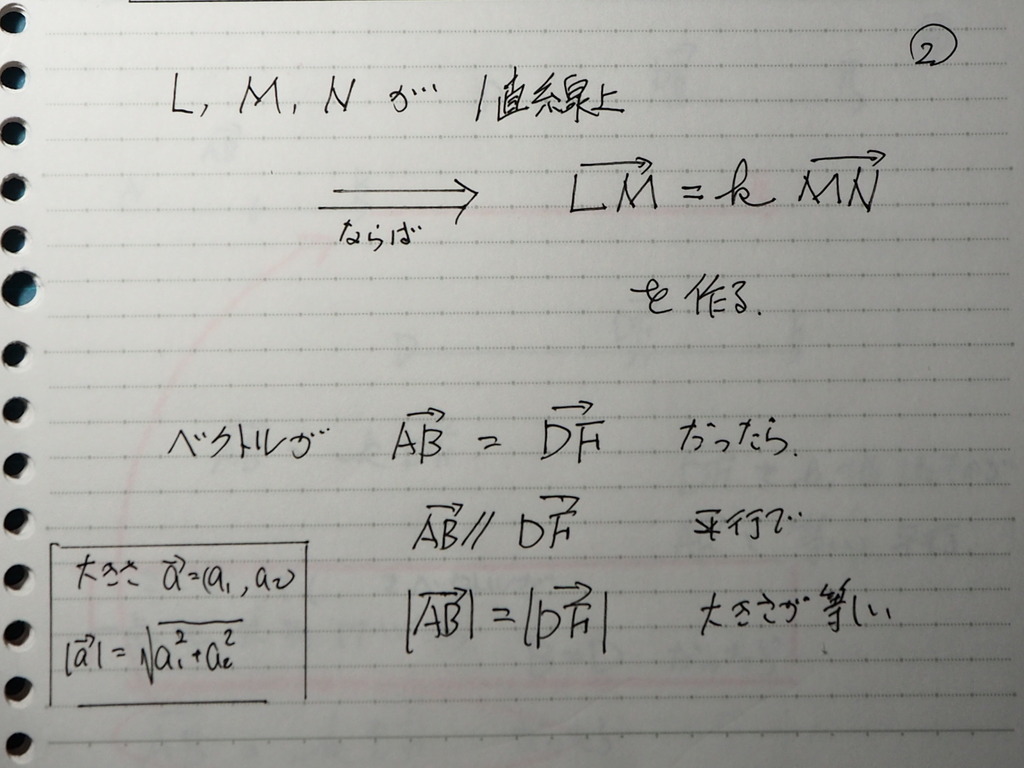 ②
L, M, N が 1直線上
⟹ ならば LM→ = k MN→
を作る.
ベクトルが AB→ = DF→ だったら.
AB→ // DF→ 平行で
|AB→| = |DF→| 大きさが等しい
大きさ a→=(a₁, a₂)
|a→| = √(a₁²+a₂²)